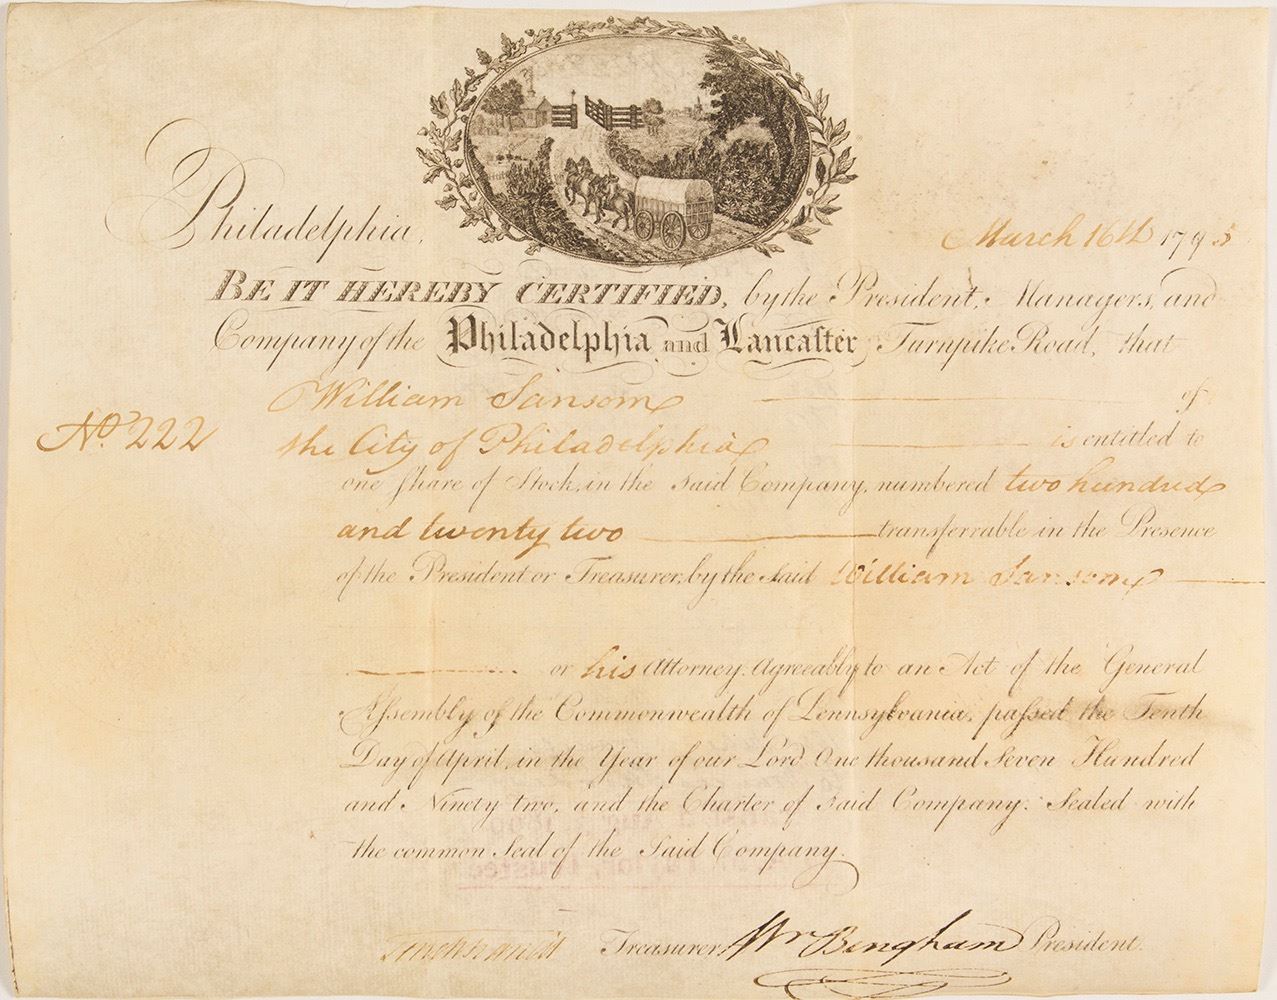 Philadelphia, March 16th 1795
BE IT HEREBY CERTIFIED, by the President, Managers, and
Company of the Philadelphia and Lancaster Turnpike Road, that
William Sansom of
No. 222
the City of Philadelphia is entitled to
one Share of Stock, in the said Company, numbered two hundred
and twenty two transferrable in the Presence
of the President or Treasurer, by the said William Sansom
or his Attorney. Agreeably to an Act of the General
Assembly of the Commonwealth of Pennsylvania, passed the Tenth
Day of April, in the Year of our Lord One thousand Seven Hundred
and Ninety two, and the Charter of said Company: Sealed with
the common Seal of the Said Company.
Treasurer, Wm Bingham President.